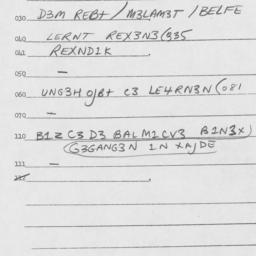 030 D3M REBT / M3LAM3T / BELFE
040 LERNT REX3N3(335
050 REXND1K
051 —
060 UNG3H OJBT C3 LE4RN3N(081
070 —
110 B1Z C3 D3 BALM1CV3 B1N3X)
G3GANG3N 1N XAJDE
111 —